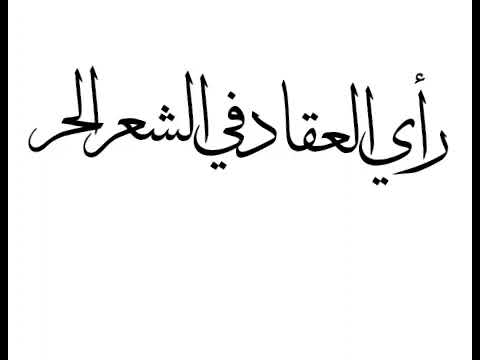 رأي العقاد في الشعر الحر